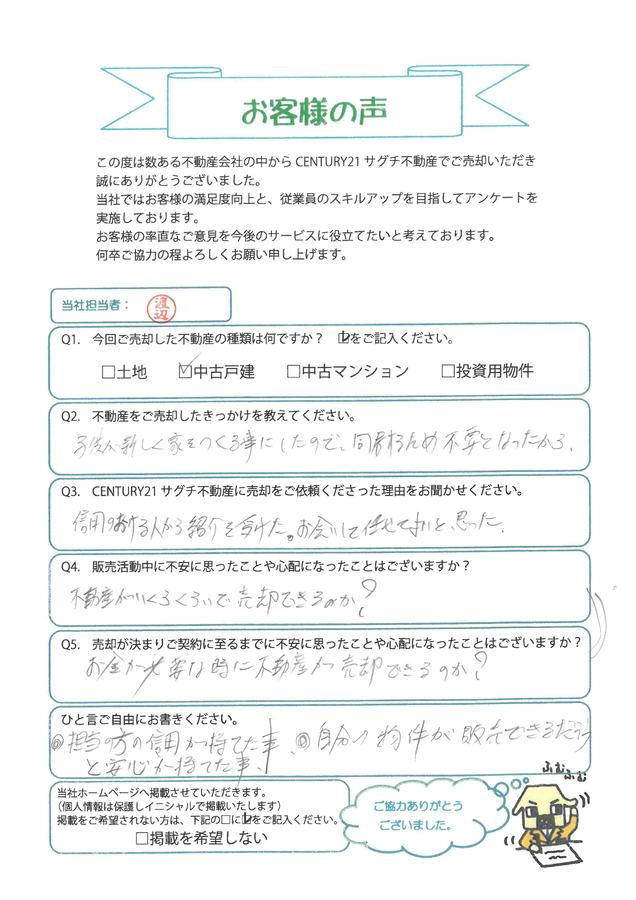 お客様の声
この度は数ある不動産会社の中から CENTURY21 サグチ不動産でご売却いただき
誠にありがとうございました。
当社ではお客様の満足度向上と、従業員のスキルアップを目指してアンケートを
実施しております。
お客様の率直なご意見を今後のサービスに役立てたいと考えております。
何卒ご協力の程よろしくお願い申し上げます。
当社担当者： 渡辺
Q1. 今回ご売却した不動産の種類は何ですか？ ☑をご記入ください。
□土地 ☑中古戸建 □中古マンション □投資用物件
Q2. 不動産をご売却したきっかけを教えてください。
子供が新しく家をつくる事にしたので、同居するため不要となったから。
Q3. CENTURY21 サグチ不動産に売却をご依頼くださった理由をお聞かせください。
信用のおける人から紹介を受けた。お会いして任せてよいと思った。
Q4. 販売活動中に不安に思ったことや心配になったことはございますか？
不動産がいくらくらいで売却できるのか？
Q5. 売却が決まりご契約に至るまでに不安に思ったことや心配になったことはございますか？
お金が必要な時に不動産が売却できるのか？
ひと言ご自由にお書きください。
◎担当の方の信用が持てた事、◎自分の物件が販売できるだろう
と安心が持てた事、
当社ホームページへ掲載させていただきます。
（個人情報は保護しイニシャルで掲載いたします）
掲載をご希望されない方は、下記の□に☑をご記入ください。
□掲載を希望しない
ご協力ありがとう
ございました。
ふむふむ